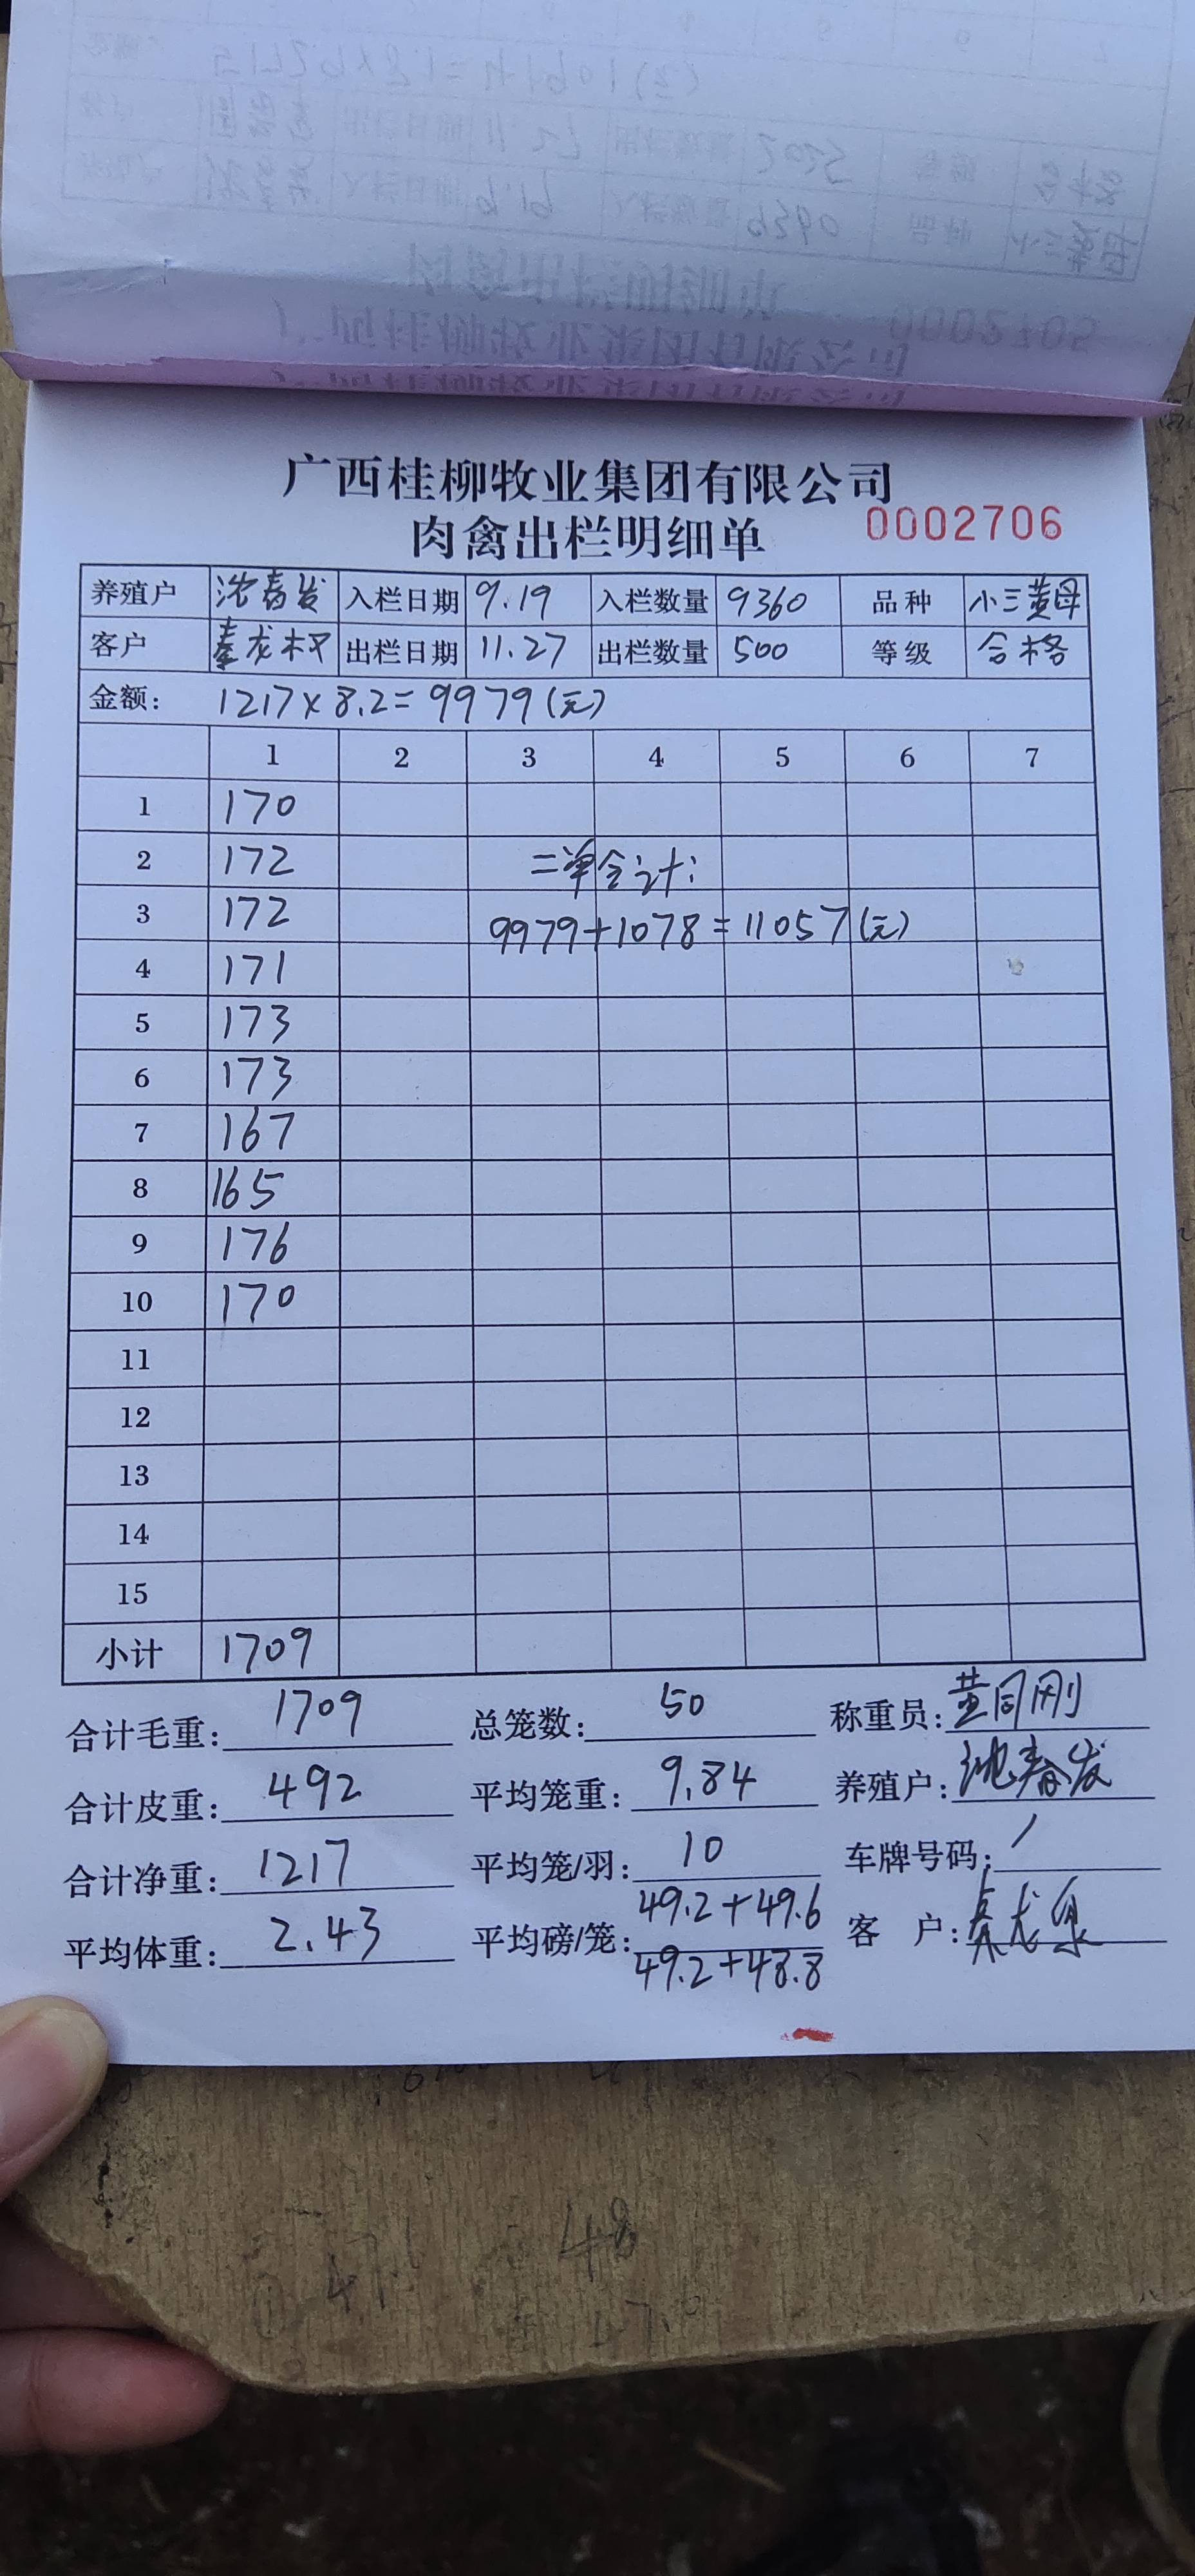 广西桂柳牧业集团有限公司
肉禽出栏明细单 0002706
养殖户 沈春发 入栏日期 9.19 入栏数量 9360 品种 小三黄母
客户 秦龙 出栏日期 11.27 出栏数量 500 等级 合格
金额: 1217×8.2=9979(元)
1 2 3 4 5 6 7
1 170
2 172 二单合计:
3 172 9979+1078=11057(元)
4 171
5 173
6 173
7 167
8 165
9 176
10 170
11
12
13
14
15
小计 1709
合计毛重: 1709 总笼数: 50 称重员: 黄同刚
合计皮重: 492 平均笼重: 9.84 养殖户: 沈春发
合计净重: 1217 平均笼/羽: 10 车牌号码: /
平均体重: 2.43 平均磅/笼: 49.2+49.6 客 户: 秦龙
49.2+48.8